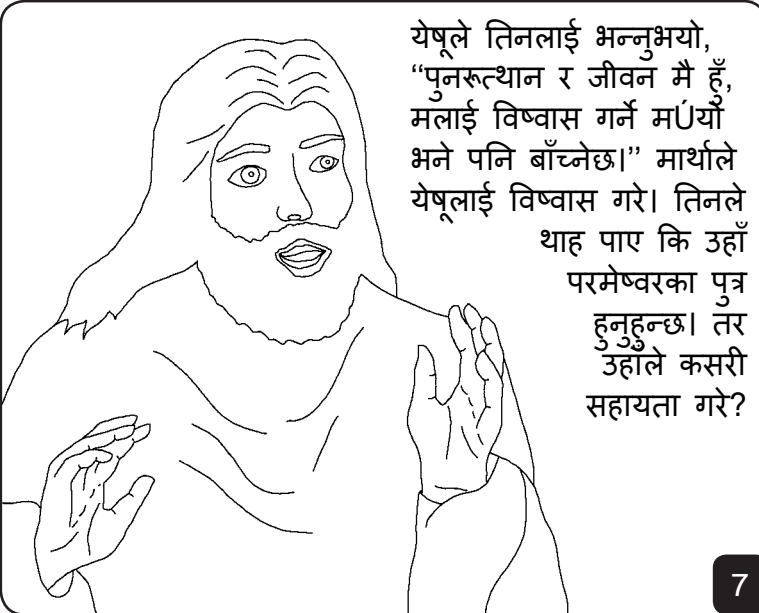 येषूले तिनलाई भन्नुभयो,
“पुनरूत्थान र जीवन मै हुँ,
मलाई विष्वास गर्ने मÚयो
भने पनि बाँच्नेछ।’’ मार्थाले
येषूलाई विष्वास गरे। तिनले
थाह पाए कि उहाँ
परमेष्वरका पुत्र
हुनुहुन्छ। तर
उहाँले कसरी
सहायता गरे?
7